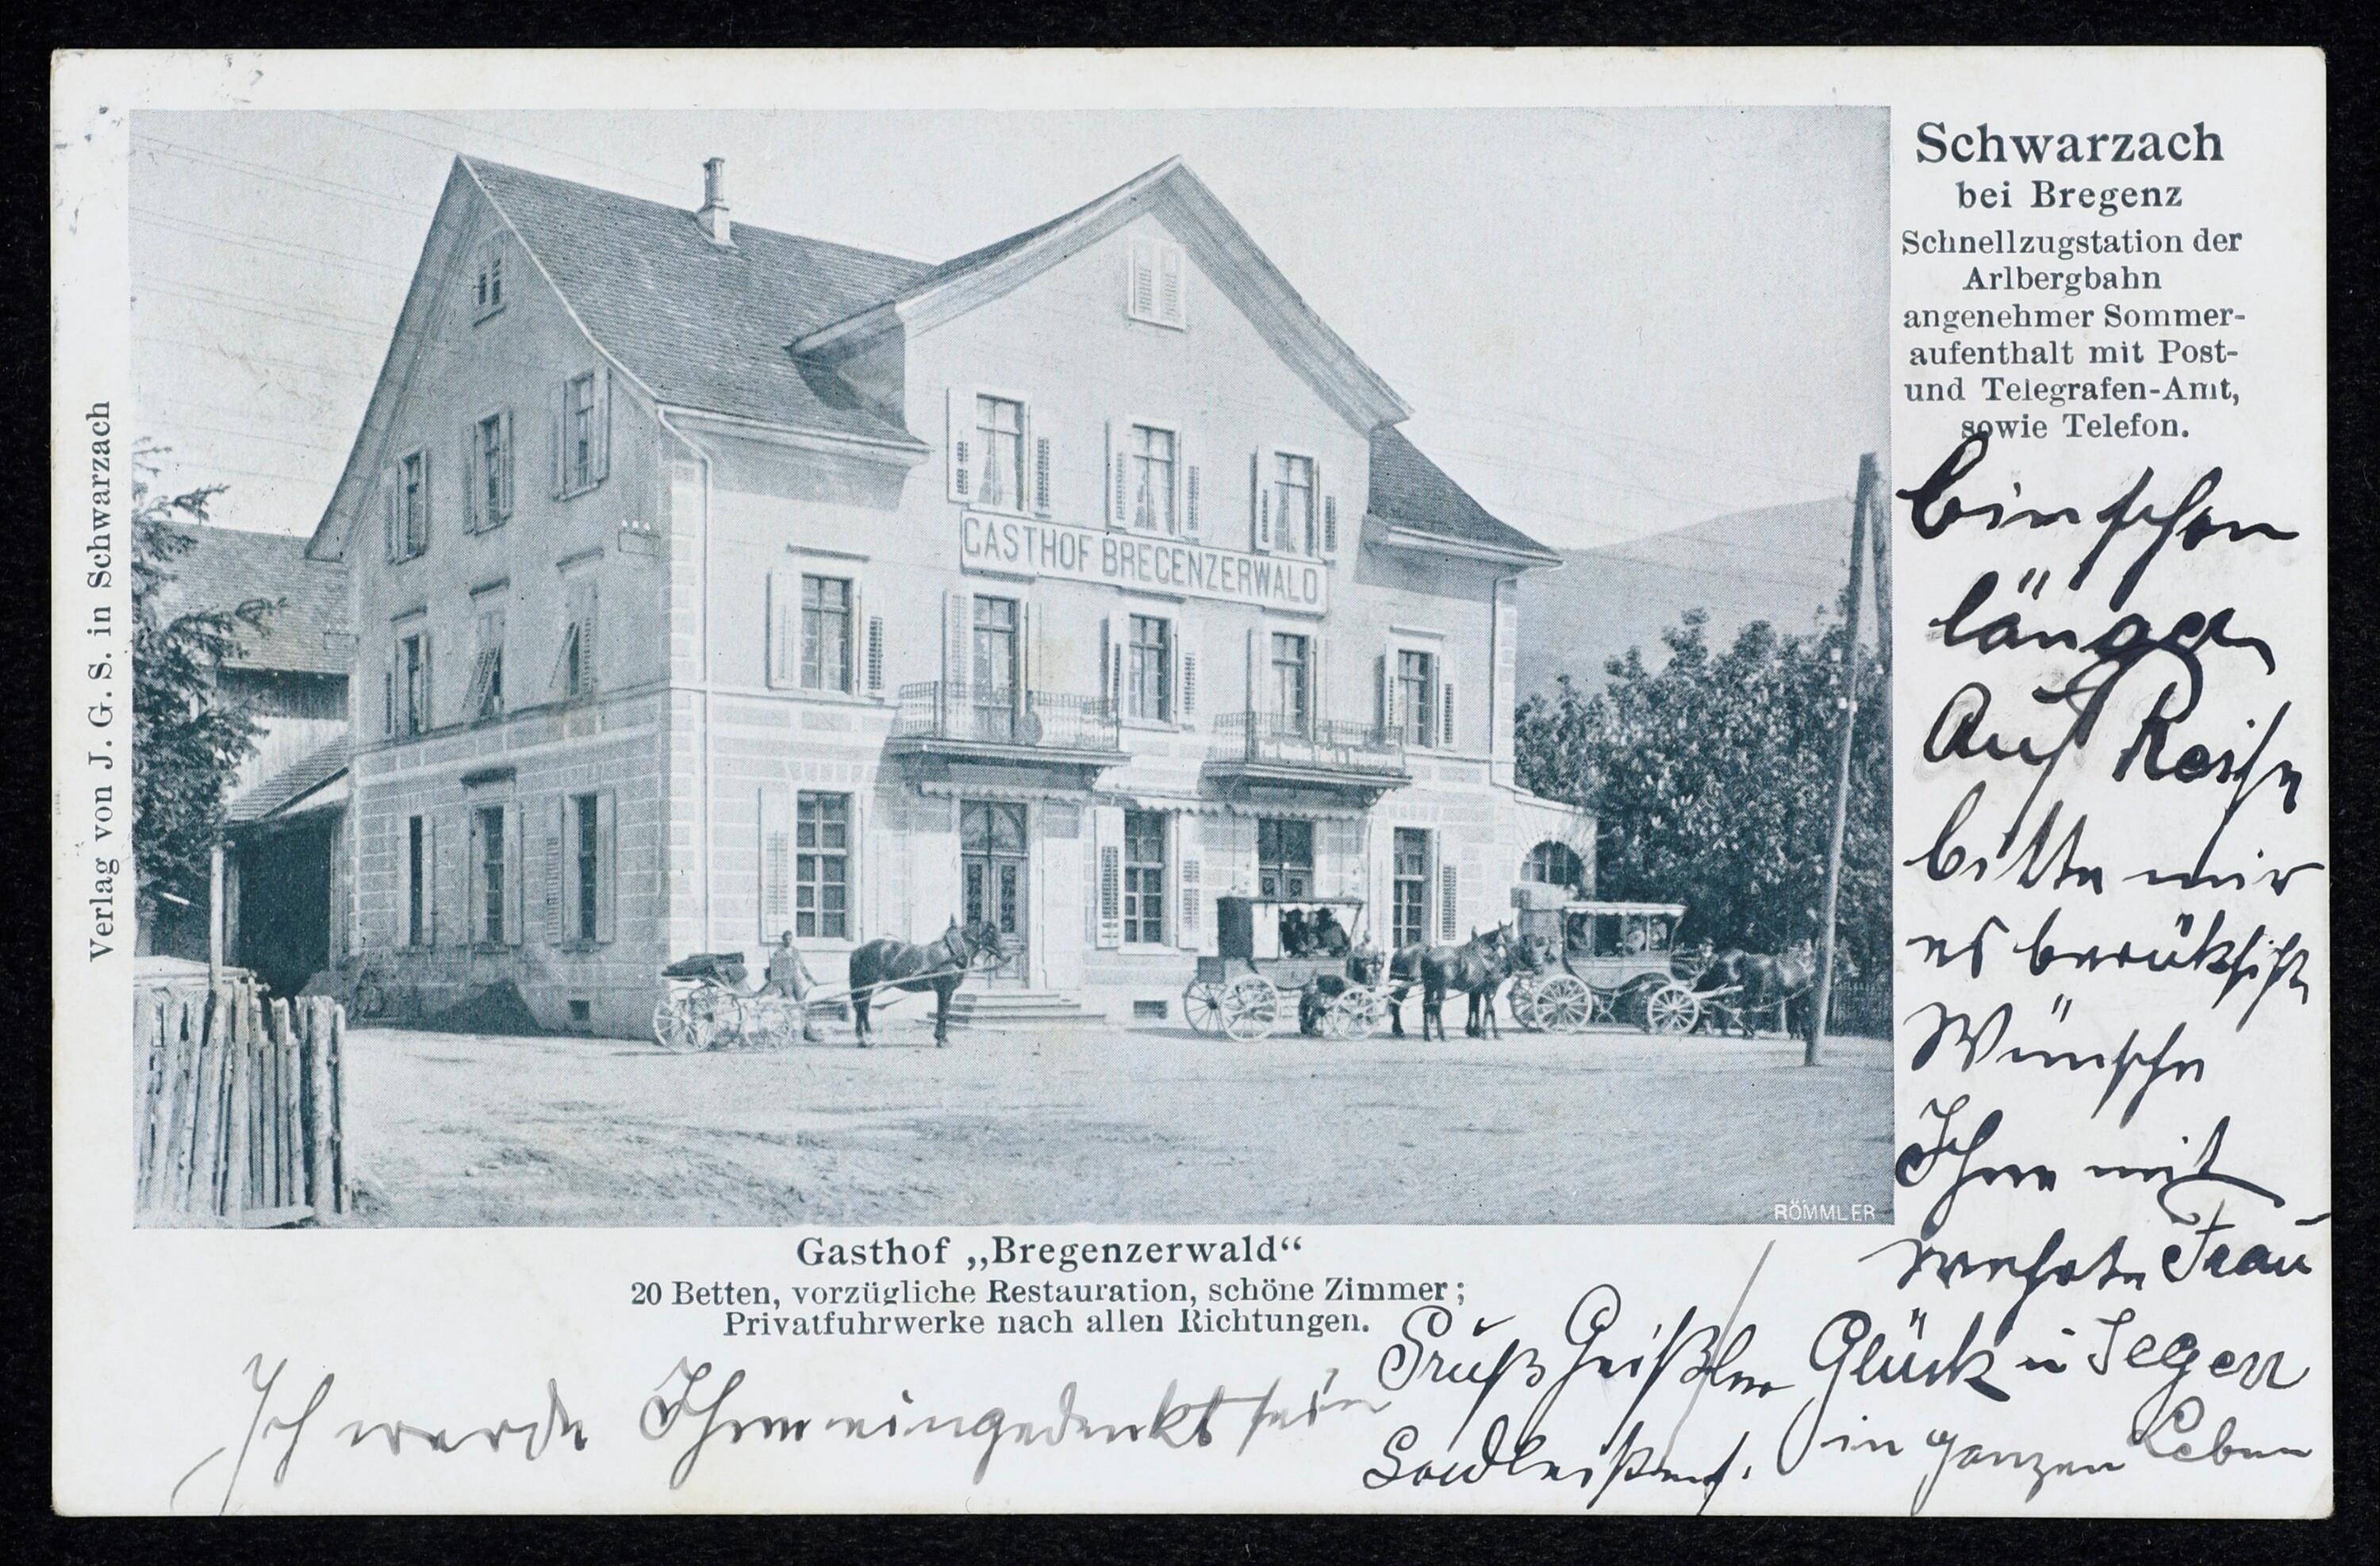 Schwarzach
bei Bregenz
Schnellzugstation der
Arlbergbahn
angenehmer Sommer-
aufenthalt mit Post-
und Telegrafen-Amt,
sowie Telefon.
bin schon
länger
Auf Reise
bitte mir
es berüksicht
Wünsche
Ihnen mit
werthe Frau
Glück u Segen
in ganzen Leben
GASTHOF BREGENZERWALD
RÖMMLER
Verlag von J. G. S. in Schwarzach
Gasthof „Bregenzerwald“
20 Betten, vorzügliche Restauration, schöne Zimmer;
Privatfuhrwerke nach allen Richtungen.
Gruß
Ich werde Ihnen eingedenkt sein